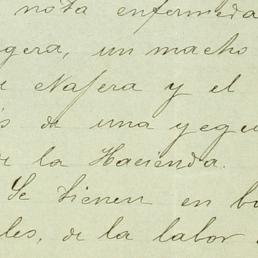 nota enfermeda
gera, un macho
Nafera y el
s de una yegu
de la Hacienda.
Se tienen en bu
les, de la labor